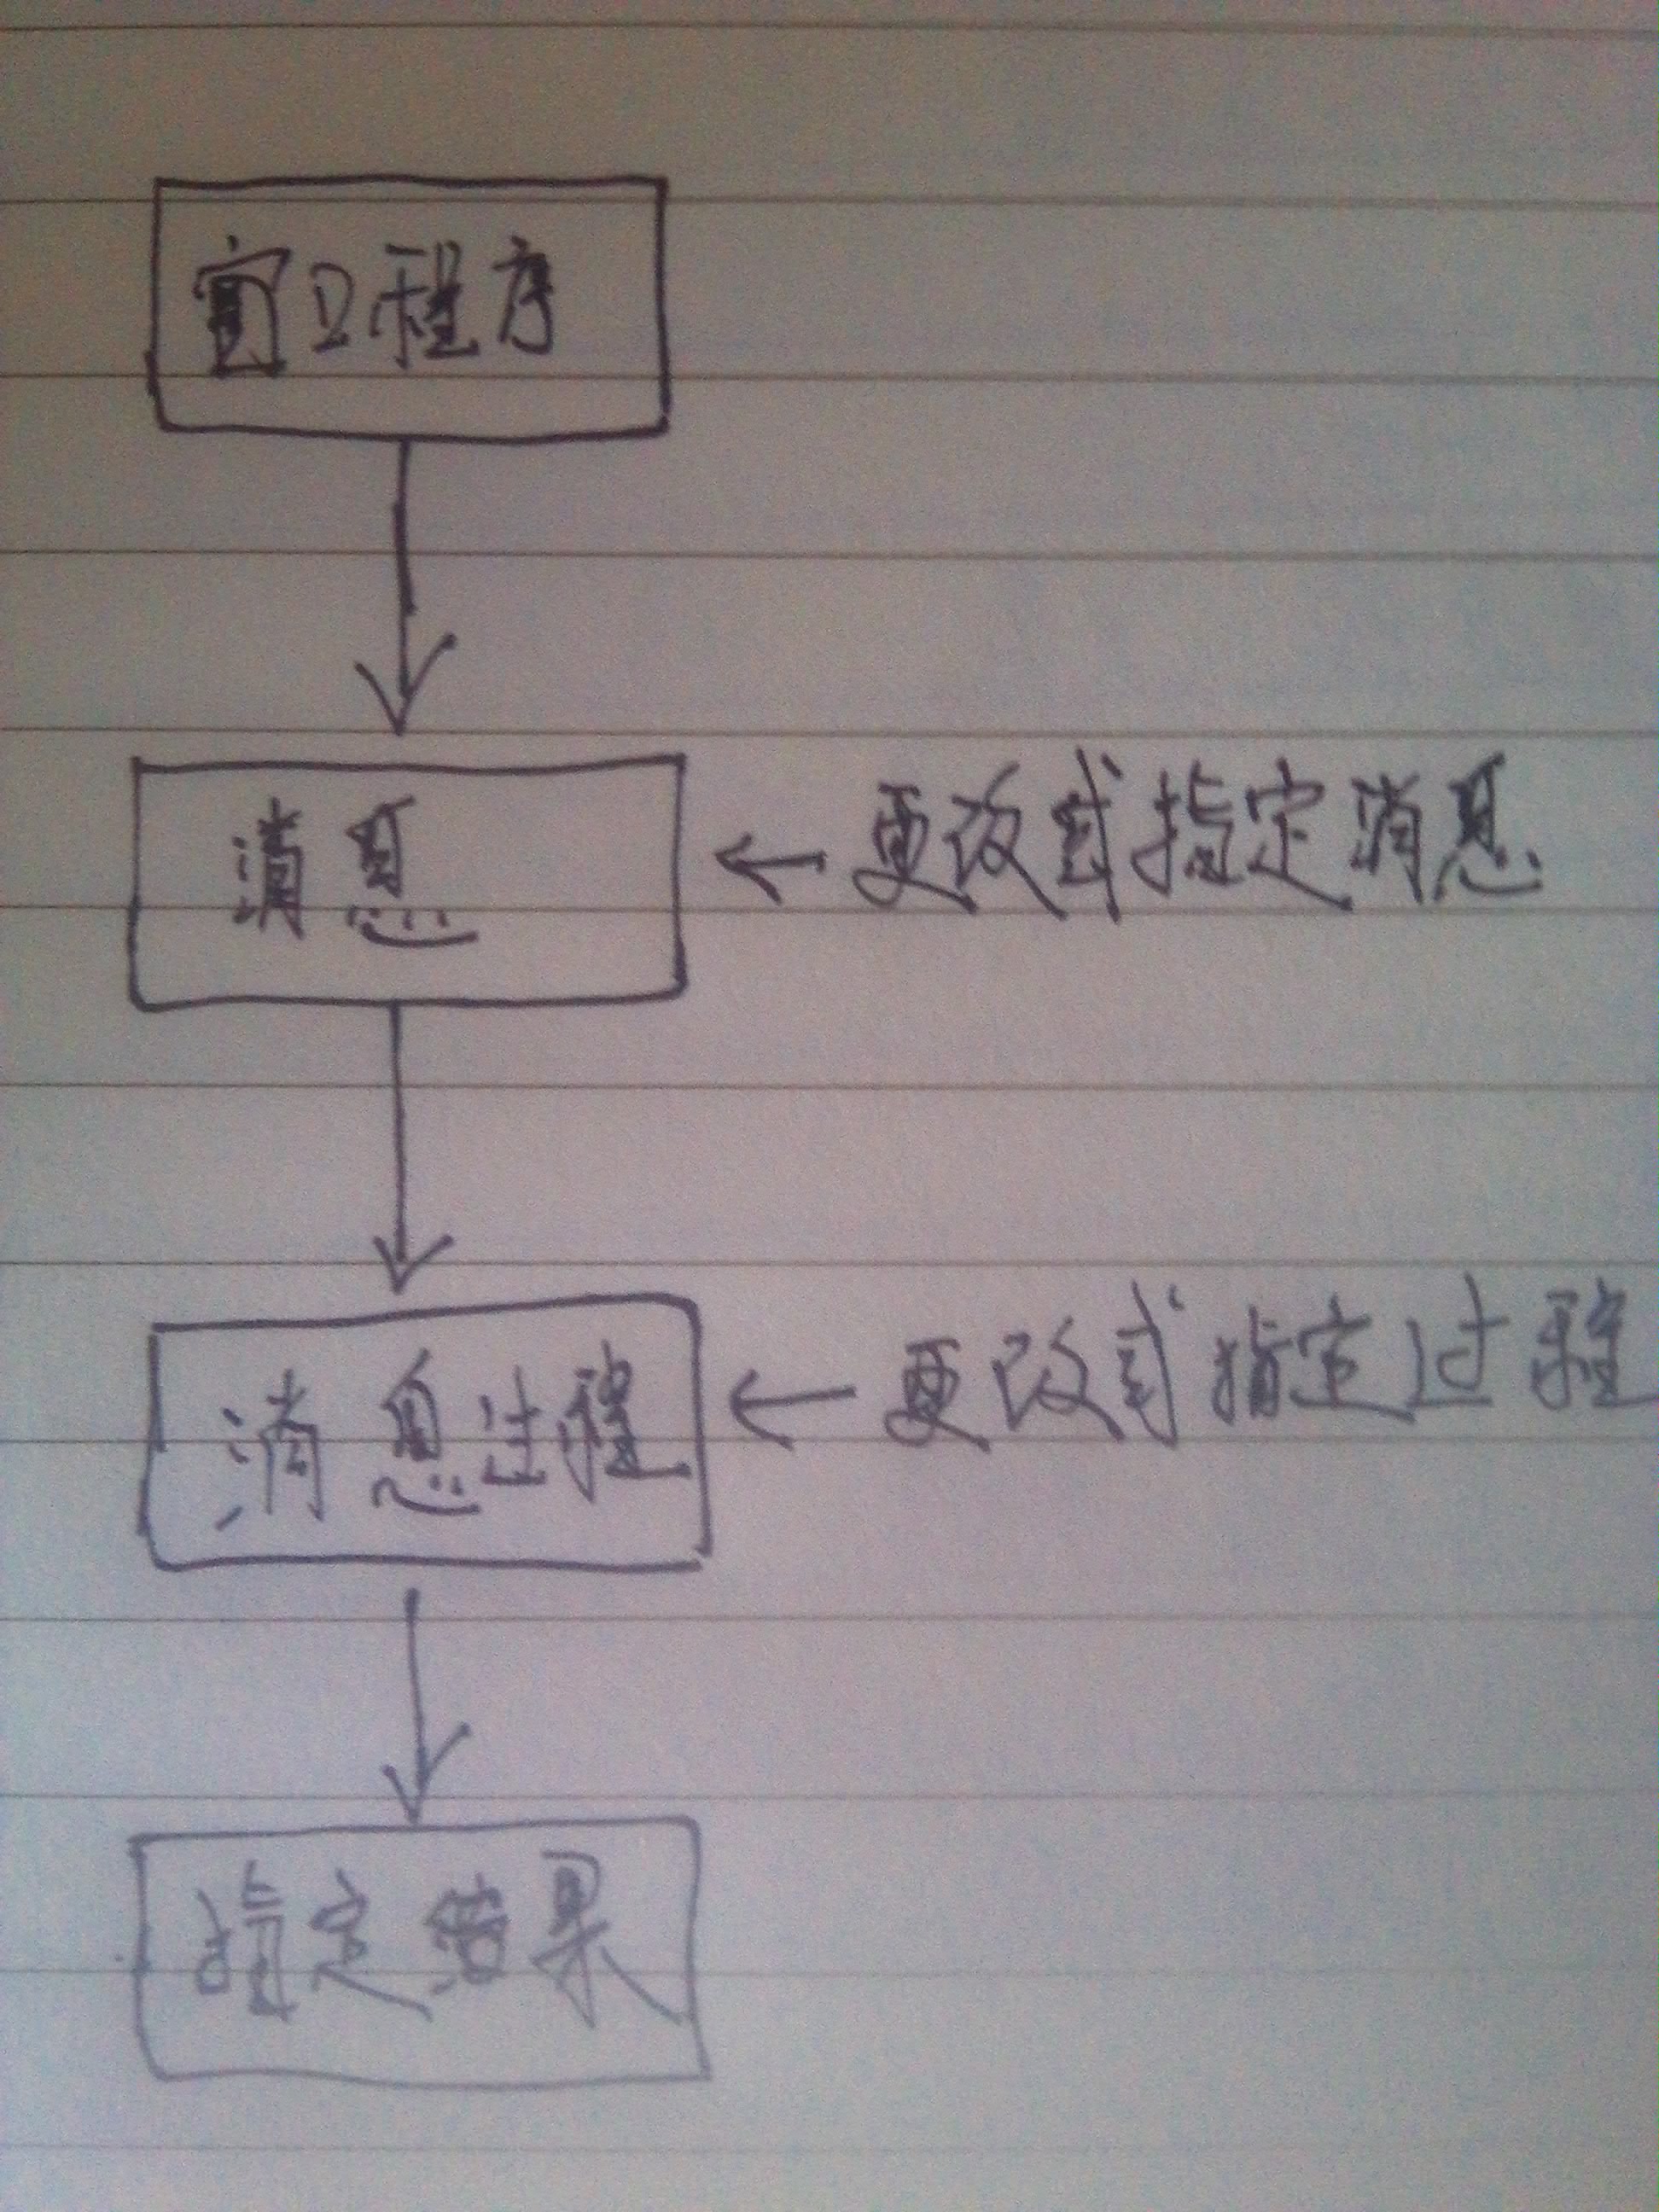 窗口程序
消息
←更改或指定消息
消息过程
←更改或指定过程
指定结果